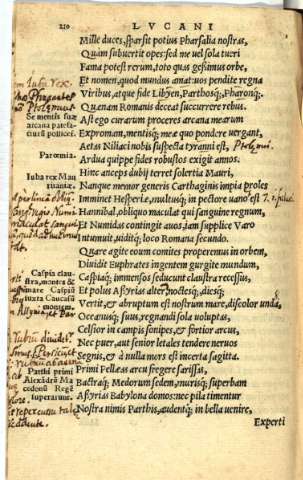 210 LVCANI
Mille duces, sparsit potius Pharsalia nostras,
Quàm subuertit opes: sed me uel sola tueri
Fama potest rerum, toto quas gessimus orbe,
Et nomen, quod mundus amat: uos pendite regna
Viribus, atque fide Libyen, Parthosq; Pharonq;
Quænam Romanis deceat succurrere rebus.
Ast ego curarum proceres arcana mearum
Expromam, mentisq; meæ quo pondere uergant.
Aetas Niliaci nobis suspecta tyranni est,
Ardua quippe fides robustos exigit annos.
Hinc anceps dubij terret solertia Mauri,
Nanque memor generis Carthaginis impia proles
Imminet Hesperiæ, multusq; in pectore uano est
Hannibal, obliquo maculat qui sanguine regnum,
Et Numidas contingit auos, iam supplice Varo
Intumuit, uiditq; loco Romana secundo.
Quare agite eoum comites properemus in orbem,
Diuidit Euphrates ingentem gurgite mundum,
Caspiaq; immensos seducunt claustra recessus,
Et polus Assyrias alter noctesq; diesq;
Vertit, & abruptum est nostrum mare, discolor unda,
Oceanusq; suus, regnandi sola uoluptas,
Celsior in campis sonipes, & fortior arcus,
Nec puer, aut senior letales tendere neruos
Segnis, & à nulla mors est incerta sagitta.
Primi Pellæas arcu fregere sarissas,
Bactraq; Medorum sedem, murisq; superbam
Assyrias Babylona domos: nec pila timentur
Nostra nimis Parthis, audentq; in bella uenire,
Experti
Se mentis suæ
arcana patefa-
cturū pollicet
Parœmia.
Iuba rex Mau
ritaniæ.
Caspia clau
stra, montes &
mare Caspiū
iuxta Caucasū
montem.
Parthi primi
Alexādri Ma
cedonū Regē
superarunt.